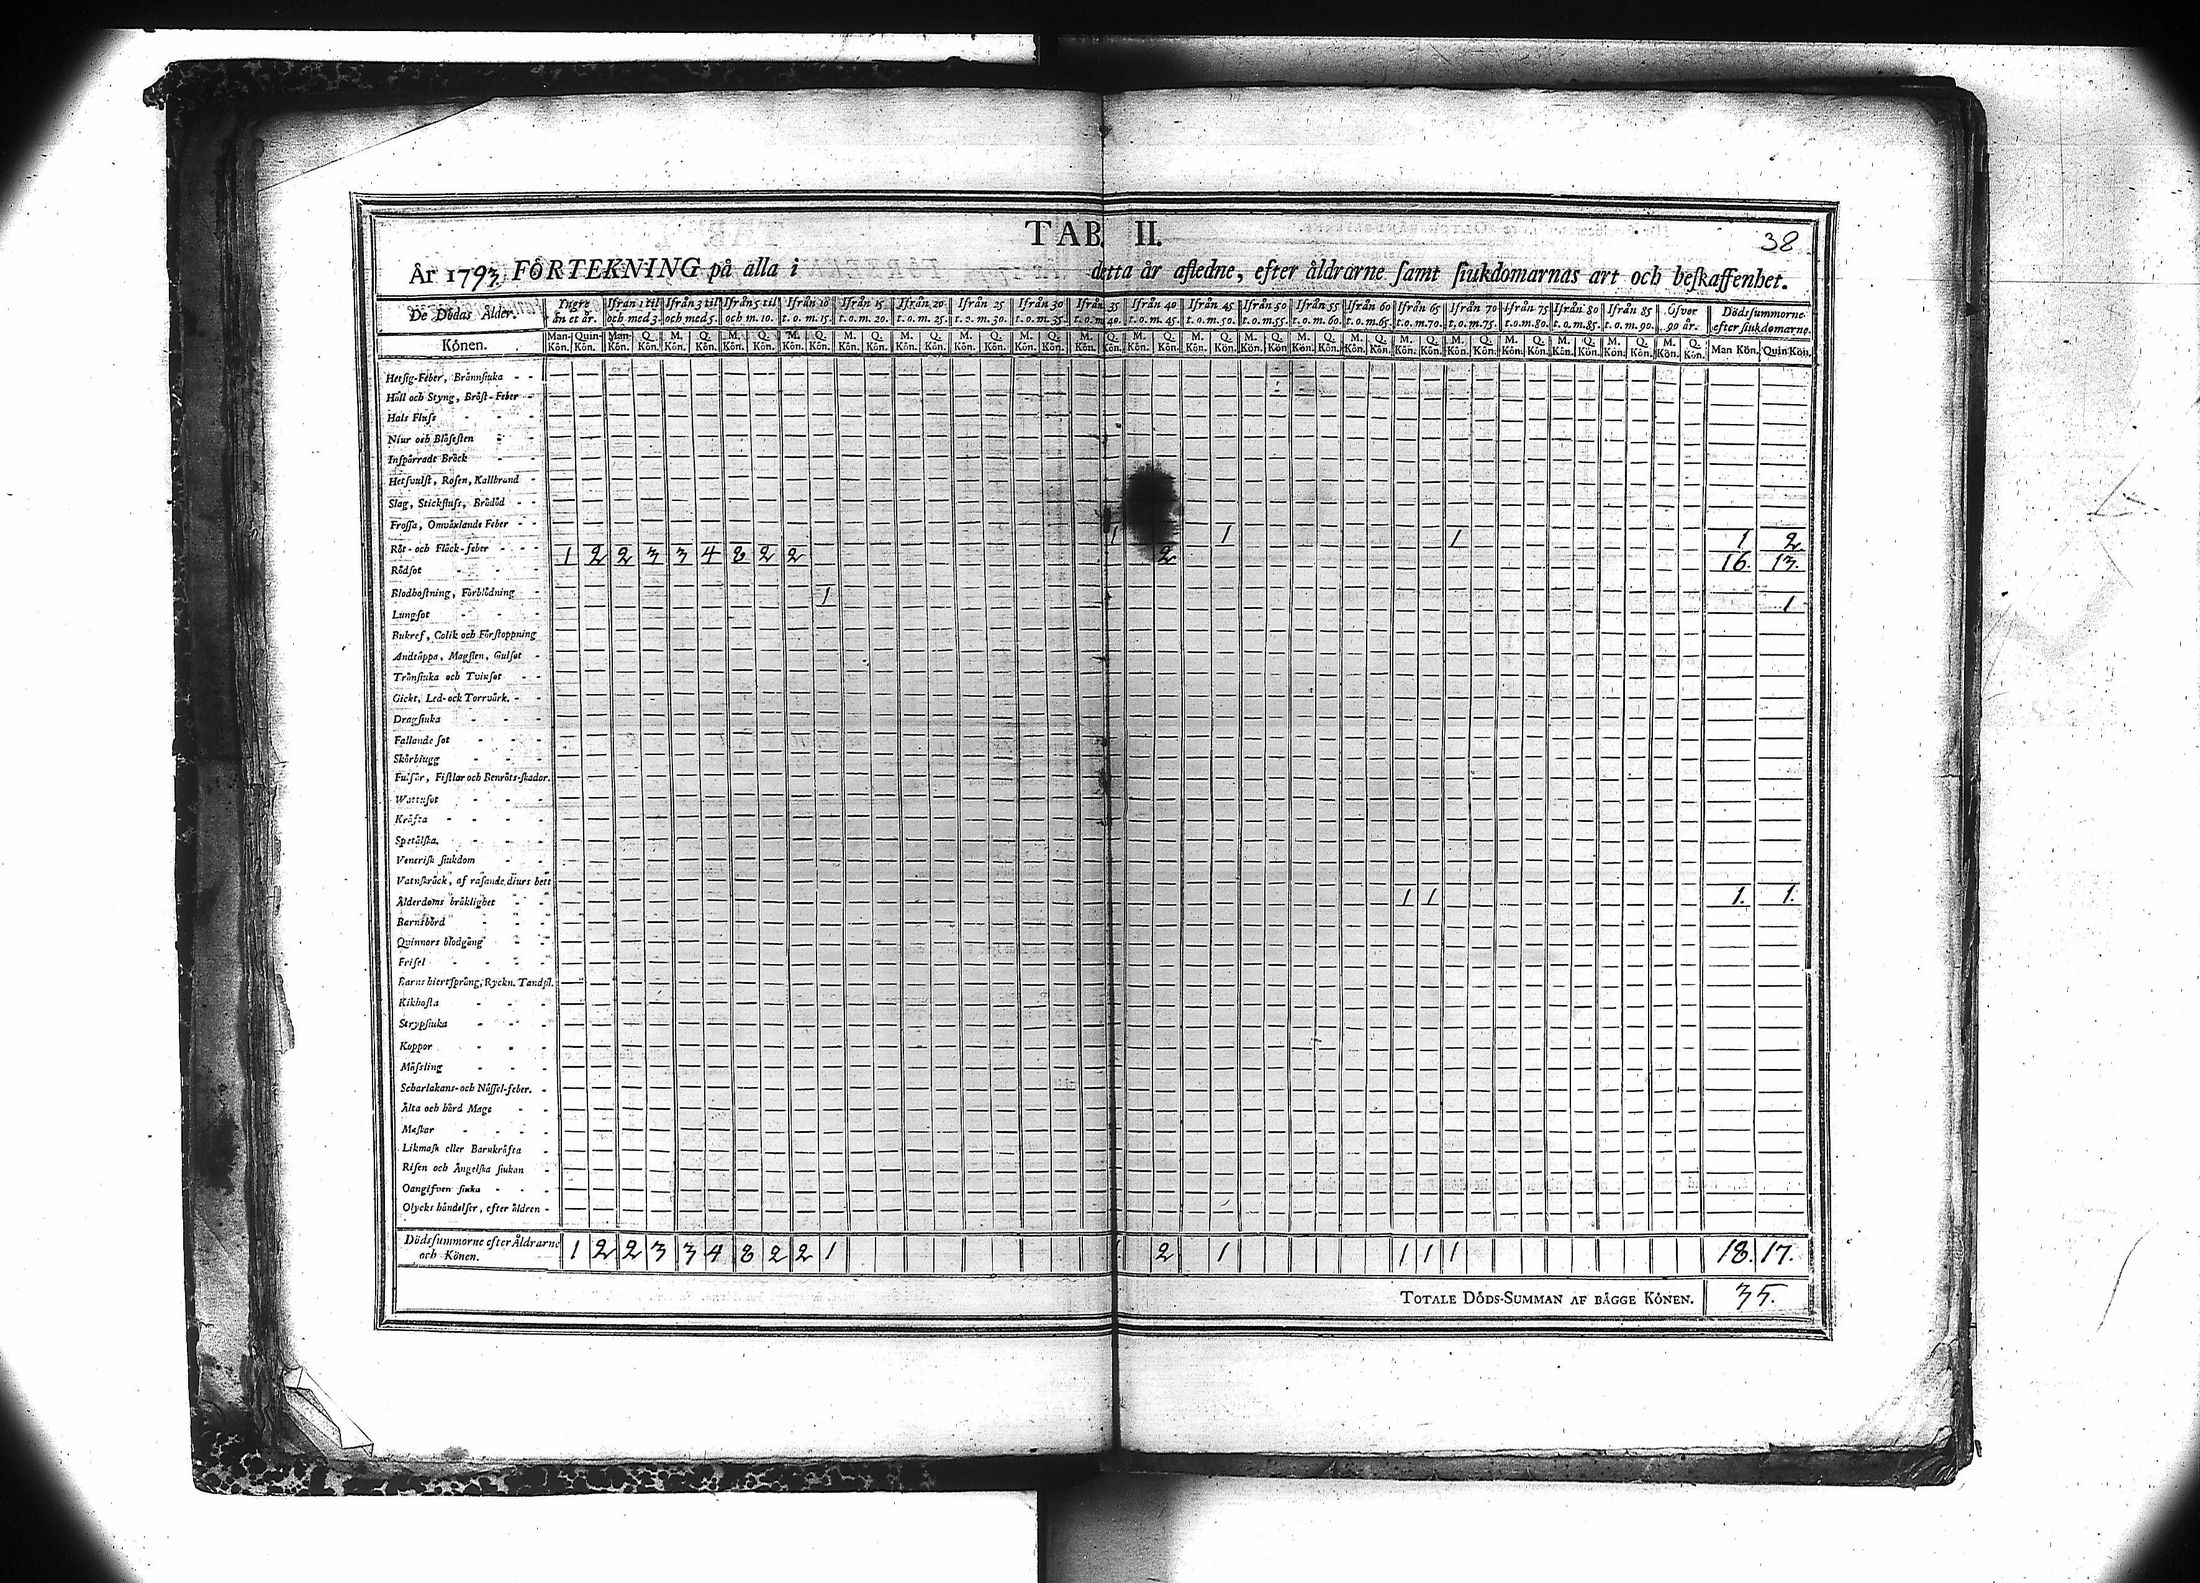 38
TAB. II.
År 1793. FÖRTEKNING på alla i detta år afledne, efter åldrarne samt siukdomarnas art och beskaffenhet.
De Dödas Ålder. Yngre än et år. Ifrån 1 til och med 3. Ifrån 3 til och med 5. Ifrån 5 til och m. 10. Ifrån 10 t. o. m. 15. Ifrån 15 t. o. m. 20. Ifrån 20 t. o. m. 25. Ifrån 25 t. o. m. 30. Ifrån 30 t. o. m. 35. Ifrån 35 t. o. m. 40. Ifrån 40 t. o. m. 45. Ifrån 45 t. o. m. 50. Ifrån 50 t. o. m. 55. Ifrån 55 t. o. m. 60. Ifrån 60 t. o. m. 65. Ifrån 65 t. o. m. 70. Ifrån 70 t. o. m. 75. Ifrån 75 t. o. m. 80. Ifrån 80 t. o. m. 85. Ifrån 85 t. o. m. 90. Öfver 90 år. Dödssummorne efter siukdomarne.
Könen. Man-Kön. Quin-Kön. Man-Kön. Q. Kön. M. Kön. Q. Kön. M. Kön. Q. Kön. M. Kön. Q. Kön. M. Kön. Q. Kön. M. Kön. Q. Kön. M. Kön. Q. Kön. M. Kön. Q. Kön. M. Kön. Q. Kön. M. Kön. Q. Kön. M. Kön. Q. Kön. M. Kön. Q. Kön. M. Kön. Q. Kön. M. Kön. Q. Kön. M. Kön. Q. Kön. M. Kön. Q. Kön. M. Kön. Q. Kön. M. Kön. Q. Kön. M. Kön. Q. Kön. M. Kön. Q. Kön. Man Kön. Quin Kön.
Hetsig-Feber, Brännsiuka
Håll och Styng, Bröst-Feber
Hals Fluss
Niur och Blåsesten
Inspärradt Bråck
Hetsvulst, Rosen, Kallbrand
Slag, Stickfluss, Brådöd
Frossa, Omväxlande Feber
Röt- och Fläck-feber 1 1 1 1 2
Rödsot 1 2 2 3 3 4 8 2 2 2 16. 13.
Blodhostning, Förblödning
Lungsot 1 1
Bukref, Colik och Förstoppning
Andtäppa, Magsten, Gulsot
Trånsiuka och Tvinsot
Gickt, Led- ock Torrvärk.
Dragsiuka
Fallande sot
Skörbiugg
Fulsår, Fistlar och Benröts-skador.
Wattusot
Kräfta
Spetälska
Venerisk siukdom
Vatnskräck, af rasande diurs bett
Ålderdoms bräklighet 1 1 1. 1.
Barnsbörd
Quinnors blodgång
Frisel
Barns hiertsprång, Ryckn. Tandpl.
Kikhosta
Strypsiuka
Koppor
Mässling
Scharlakans- och Nässel-feber.
Älta och hård Mage
Maskar
Likmask eller Barnkräfta
Risen och Ängelska siukan
Oangifven siuka
Olycks händelser, efter åldren
Dödssummorne efter Åldrarne och Könen. 1 2 2 3 3 4 8 2 2 1 2 1 1 1 1 18. 17.
TOTALE DÖDS-SUMMAN AF BÄGGE KÖNEN. 35.